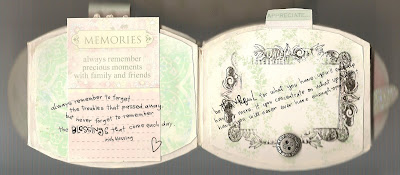 MEMORIES
always remember
precious moments
with family and friends
always remember to forget
the troubles that passed away.
but never forget to remember
the BLESSINGS that come each day.
irish blessing
APPRECIATE
for what you have; you'll end up
having more. if you concentrate on what you don't
have, you will never ever have enough.